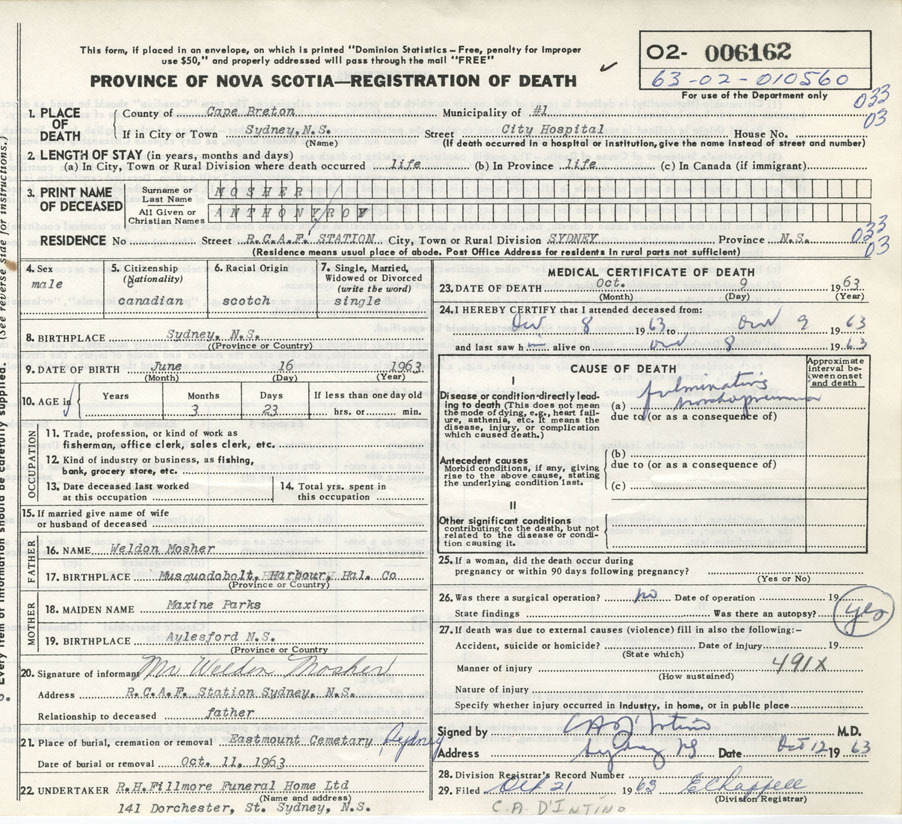 This form, if placed in an envelope, on which is printed "Dominion Statistics – Free, penalty for improper
use $50," and properly addressed will pass through the mail "FREE"
PROVINCE OF NOVA SCOTIA—REGISTRATION OF DEATH
O2- 006162
63-02-010560
For use of the Department only
033
03
1. PLACE OF DEATH
County of Cape Breton Municipality of #1
If in City or Town Sydney, N.S. Street City Hospital House No.
(Name) (If death occurred in a hospital or institution, give the name instead of street and number)
2. LENGTH OF STAY (in years, months and days)
(a) In City, Town or Rural Division where death occurred life (b) In Province life (c) In Canada (if immigrant)
3. PRINT NAME OF DECEASED
Surname or Last Name MOSHER
All Given or Christian Names ANTHONY/ROY
RESIDENCE No Street R.C.A.F. STATION City, Town or Rural Division SYDNEY Province N.S.
033
03
(Residence means usual place of abode. Post Office Address for residents in rural parts not sufficient)
4. Sex
male
5. Citizenship
(Nationality)
canadian
6. Racial Origin
scotch
7. Single, Married,
Widowed or Divorced
(write the word)
single
8. BIRTHPLACE Sydney, N.S.
(Province or Country)
9. DATE OF BIRTH June 16 1963
(Month) (Day) (Year)
10. AGE in
Years
Months
3
Days
23
If less than one day old
hrs. or min.
OCCUPATION
11. Trade, profession, or kind of work as
fisherman, office clerk, sales clerk, etc.
12. Kind of industry or business, as fishing,
bank, grocery store, etc.
13. Date deceased last worked
at this occupation
14. Total yrs. spent in
this occupation
15. If married give name of wife
or husband of deceased
FATHER
16. NAME Weldon Mosher
17. BIRTHPLACE Musquodobolt, Harbour, Hal. Co
(Province or Country)
MOTHER
18. MAIDEN NAME Maxine Parks
19. BIRTHPLACE Aylesford N.S.
(Province or Country)
20. Signature of informant Mr Weldon Mosher
Address R.C.A.F. Station Sydney, N.S.
Relationship to deceased father
21. Place of burial, cremation or removal Eastmount Cemetary Sydney
Date of burial or removal Oct. 11, 1963
22. UNDERTAKER R.H.Fillmore Funeral Home Ltd
(Name and address)
141 Dorchester, St. Sydney, N.S.
MEDICAL CERTIFICATE OF DEATH
23. DATE OF DEATH Oct. 9 1963
(Month) (Day) (Year)
24. I HEREBY CERTIFY that I attended deceased from:
Oct 8 1963 to Oct 9 1963
and last saw h alive on Oct 8 1963
CAUSE OF DEATH
Approximate
interval be-
tween onset
and death
I
Disease or condition directly lead-
ing to death (This does not mean
the mode of dying, e.g., heart failure,
asthenia, etc. It means the
disease, injury, or complication
which caused death.)
(a) fulminating
bronchopneumonia
due to (or as a consequence of)
Antecedent causes
Morbid conditions, if any, giving
rise to the above cause, stating
the underlying condition last.
(b)
due to (or as a consequence of)
(c)
II
Other significant conditions
contributing to the death, but not
related to the disease or condi-
tion causing it.
25. If a woman, did the death occur during
pregnancy or within 90 days following pregnancy?
(Yes or No)
26. Was there a surgical operation? no Date of operation 19
State findings Was there an autopsy? yes
27. If death was due to external causes (violence) fill in also the following:–
Accident, suicide or homicide? Date of injury 19
(State which)
Manner of injury 491X
(How sustained)
Nature of injury
Specify whether injury occurred in Industry, in home, or in public place
Signed by C A D'Intino M.D.
Address Sydney NS Date Oct 12 1963
28. Division Registrar's Record Number
29. Filed Oct 21 1963 E Chappell
(Division Registrar)
C.A. D'INTINO
(See reverse side for instructions.)
Every item of information should be carefully supplied.